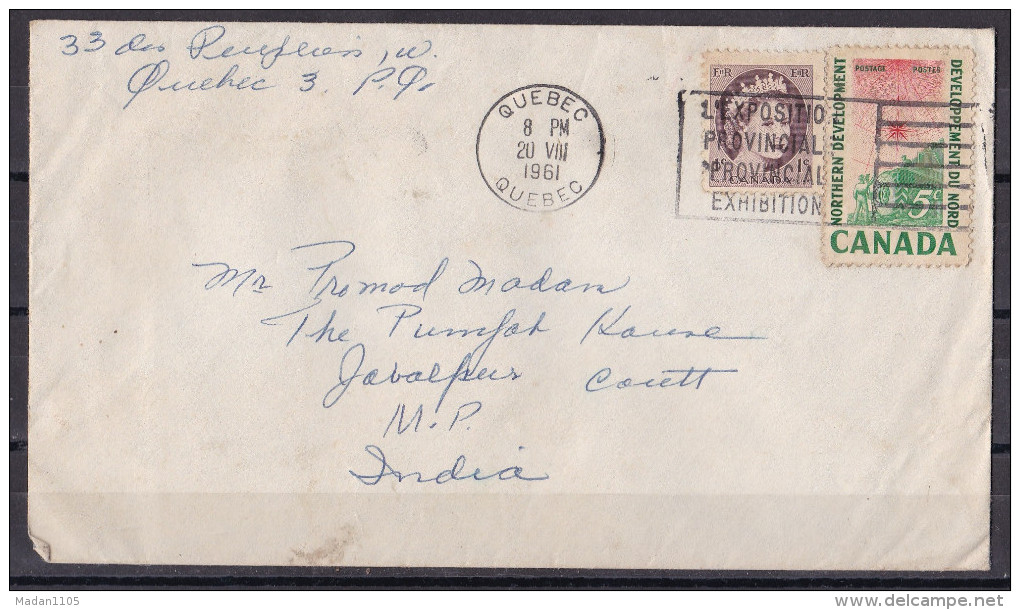 33 des Peupliers, w.
Quebec 3, P.Q.
QUEBEC
8 PM
20 VIII
1961
QUEBEC
E R E R
1c 1c
CANADA
L'EXPOSITIO
PROVINCIAL
PROVINCIAL
EXHIBITION
POSTAGE POSTES
NORTHERN DEVELOPMENT
DÉVELOPPEMENT DU NORD
5c
CANADA
Mr Promod Madan
The Punjab House
Jabalpur Contt
M.P.
India
Madan1105
delcampe.net